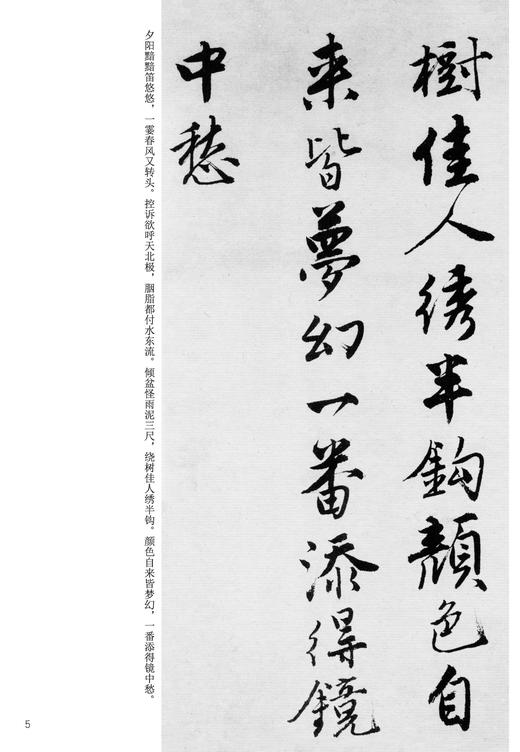 樹佳人綉半鈎顏色自
来皆夢幻一番添得鏡
中愁
夕阳黯黯笛悠悠，一霎春风又转头。控诉欲呼天北极，胭脂都付水东流。倾盆怪雨泥三尺，绕树佳人绣半钩。颜色自来皆梦幻，一番添得镜中愁。
5